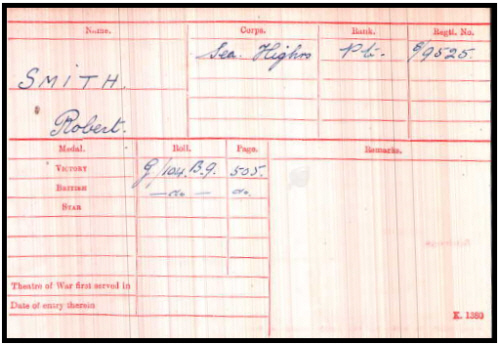 Name. Corps. Rank. Regtl. No.
Sea. Highrs Pte. S/9525.
SMITH.
Robert.
Medal. Roll. Page. Remarks.
VICTORY G/104.B.9. 505.
BRITISH — do — do.
STAR
Theatre of War first served in
Date of entry therein
K. 1380